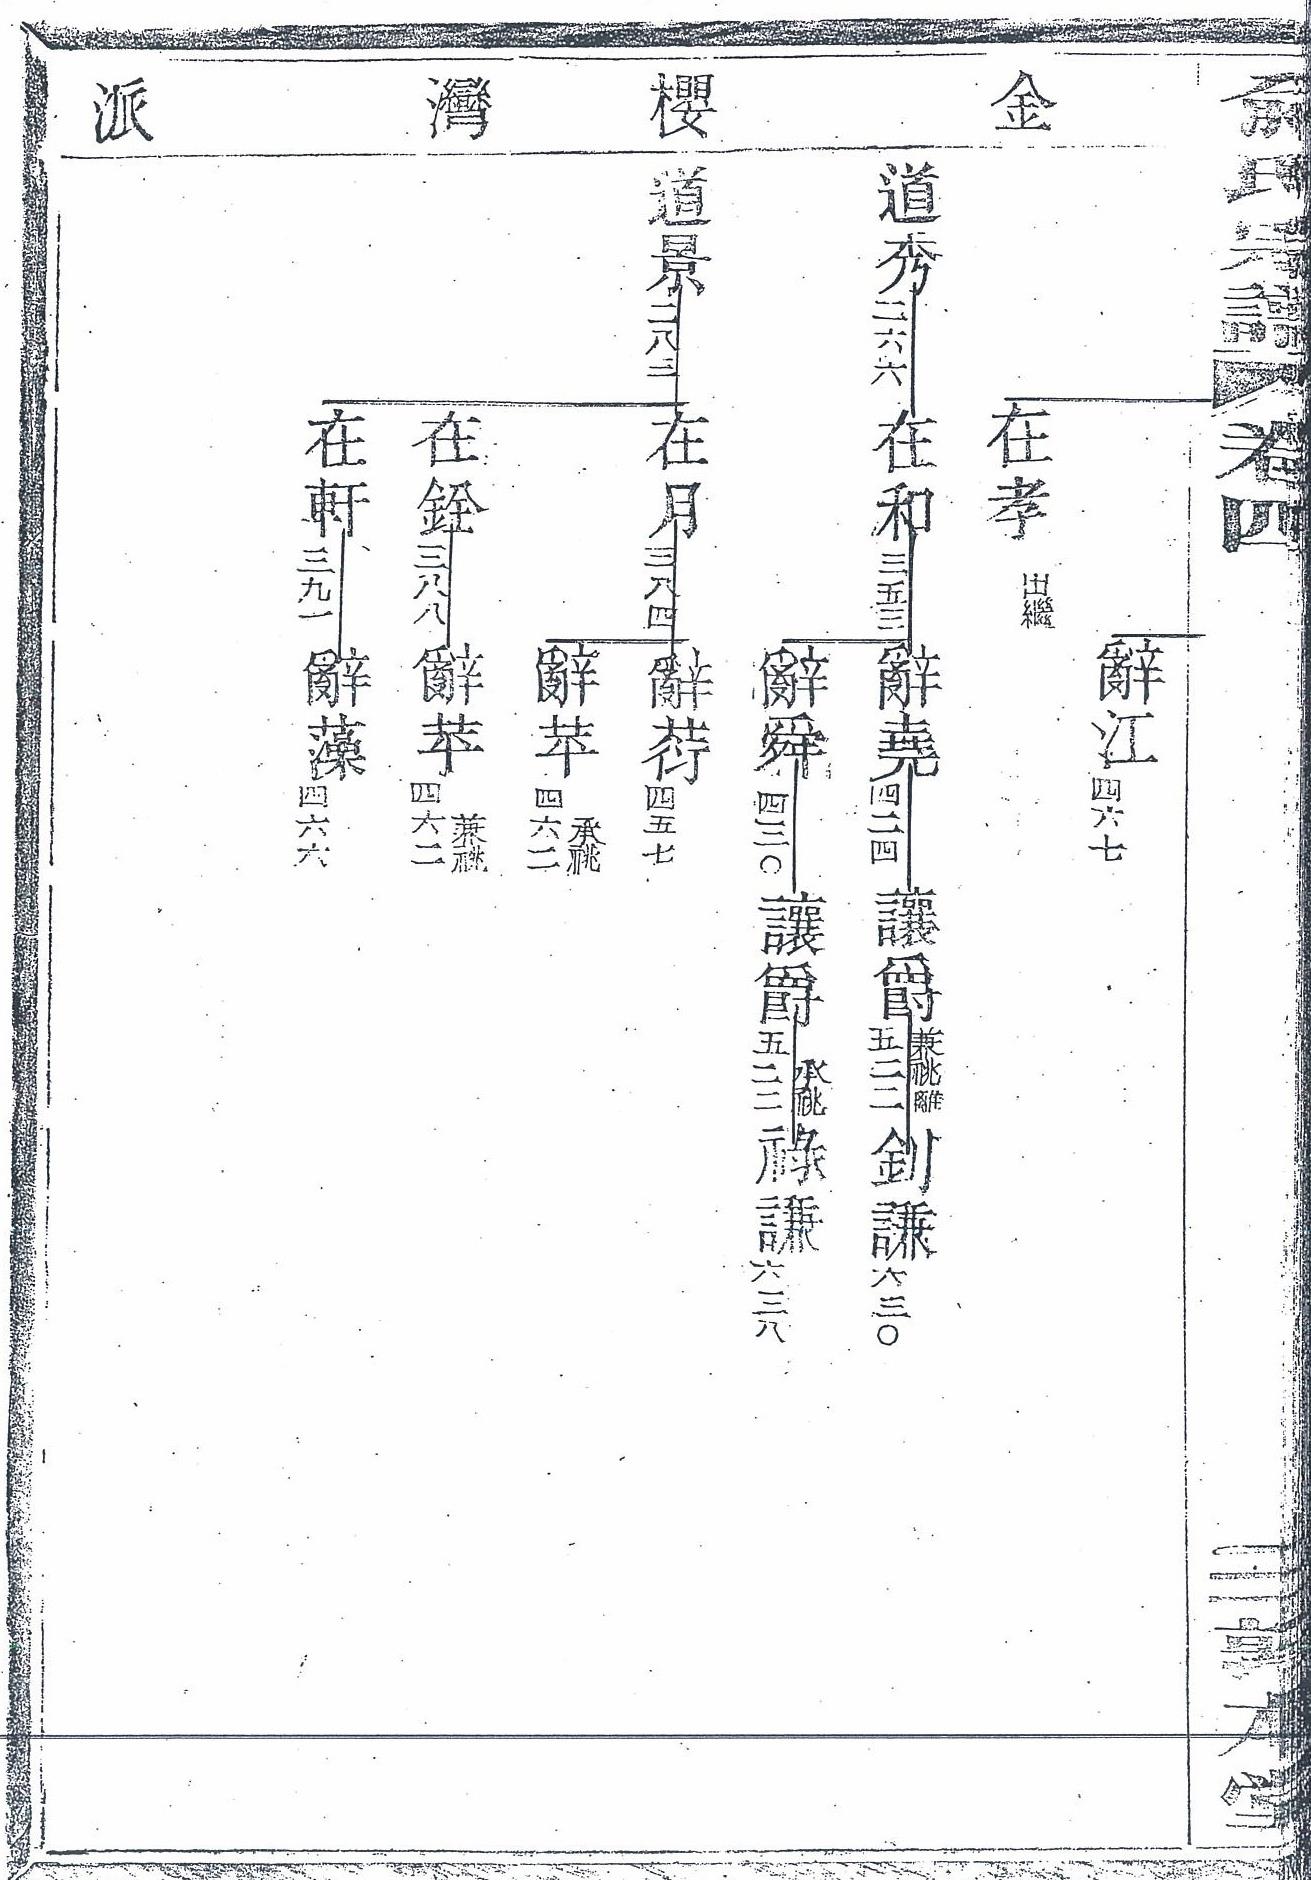 俞氏宗譜 卷四
三 敦本堂
金櫻灣派
辭江 四六七
在孝 出繼
道秀 二六六
在和 三五三
辭堯 四二四
讓爵 五二二 兼祧離
釗謙 六三〇
辭舜 四三〇
讓爵 五二二 承祧
祿謙 六三八
道景 二八三
在月 三八四
辭荇 四五七
辭苹 四六二 承祧
在銓 三八八
辭苹 四六二 兼祧
在軒 三九一
辭藻 四六六